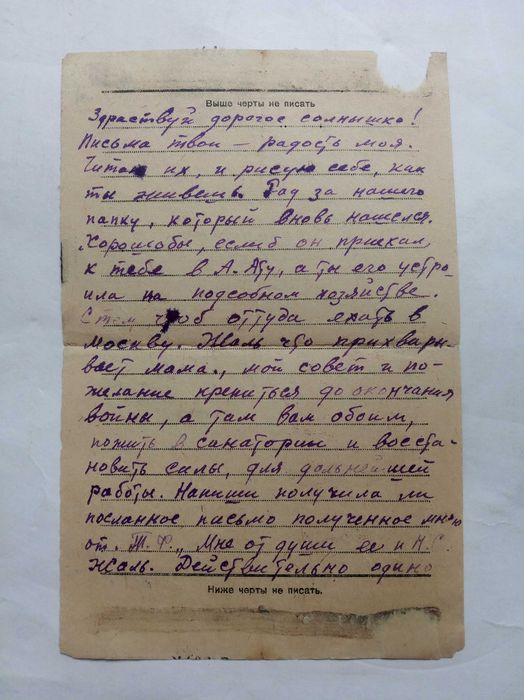 Выше черты не писать
Здраствуй дорогое солнышко!
Письма твои — радость моя.
Читаю их, и рисую себе, как
ты живешь. Рад за нашего
папку, который вновь нашелся.
Хорошобы, еслиб он приехал,
к тебе в А.-Ату, а ты его устро-
ила на подсобном хозяйстве.
С тем чтоб оттуда ехать в
Москву. Жаль что прихвары-
вает мама., мой совет и по-
желание крепиться до окончания
войны, а там вам обоим,
пожить в санатории и восста-
новить силы, для дальнейшей
работы. Напиши получила ли
посланное письмо полученное мною
от. Т.Ф., Мне от души ее и Н.С.
Жаль. Действительно одино
Ниже черты не писать.